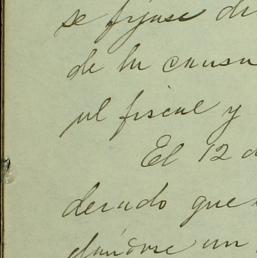 se fijase di
de la causa
al fiscal y
El 12 d
derado que
dándose un